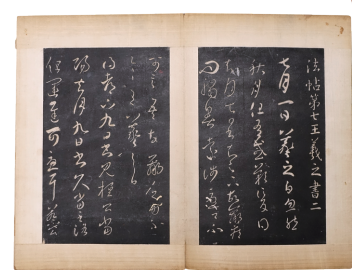 法帖第七王羲之書二
七月一日羲之白忽然
秋月但有感歎信反得
去月七日書知足下故羸疾
問觸暑遠涉憂卿不
可言吾故羸乏力不
具王羲之白
得都下九日書見桓公當
陽去月九日書久當至洛
但運遲可憂耳蔡公